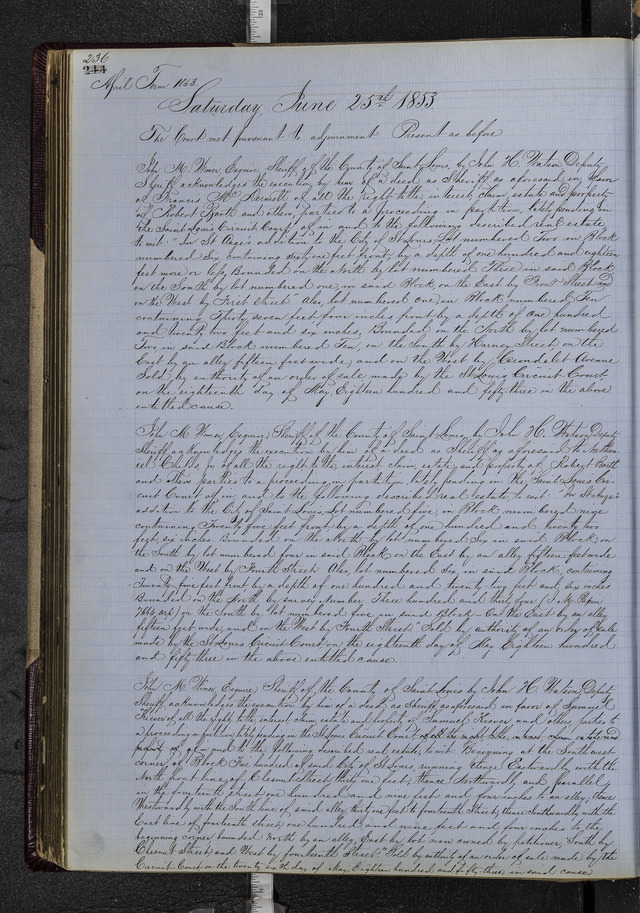 236
244
April Term 1853
Saturday June 25th 1853
The Court met pursuant to adjournment Present as before
John M. Wimer Esquire, Sheriff of the County of Saint Louis, by John H. Watson Deputy
Sheriff acknowledges the execution by him of a deed as Sheriff as aforesaid in favor
of Francis of all the right title, interest, claim estate and property
of Robert Barth and others, parties to a proceeding in partition, lately pending in
the Saint Louis Circuit Court, of in and to the following described real estate
to wit: "In St Ange's addition to the City of St Louis, Lot numbered Two in Block
numbered Six containing sixty one feet front by a depth of one hundred and eighteen
feet more or less, Bounded on the North by lot numbered Three in said Block
on the South by lot numbered one in said Block on the East by Front Street and
on the West by First Street Also, lot numbered one in Block numbered Ten
containing Thirty seven feet four inches front by a depth of one hundred
and twenty two feet and six inches, Bounded on the North by lot numbered
Two in said Block numbered Ten, on the South by Harney Street, on the
East by an alley fifteen feet wide, and on the West by Carondelet Avenue
Sold by authority of an order of sale made by the St Louis Circuit Court
on the eighteenth day of May Eighteen hundred and fifty three in the above
entitled cause.
John M Wimer, Esquire, Sheriff of the County of Saint Louis, by John H. Watson, Deputy
Sheriff, acknowledges the execution by him of a deed as Sheriff as aforesaid to Nathan
iel Childs Jr of all the right title interest claim, estate, and property of Robert Barth
and others parties to a proceeding in partition lately pending in the Saint Louis Cir
cuit Court of in and to the following described real estate to wit: "In St Ange's
addition to the City of Saint Louis, Lot numbered five, in Block numbered nine
containing Twenty five feet front by a depth of one hundred and twenty two
feet six inches Bounded on the North by lot numbered Six in said Block, on
the South by lot numbered four in said Block, on the East by an alley, fifteen feet wide
and on the West by Fourth Street. Also, lot numbered six, in said Block, containing
Twenty five feet front, by a depth of one hundred and twenty two feet and six inches
Bounded on the North by survey Number Three hundred and thirty four
on the South by lot numbered five in said Block. On the East by an alley
fifteen feet wide and on the West by Fourth Street." Sold by authority of an order of sale
made by the St Louis Circuit Court on the eighteenth day of May Eighteen hundred
and fifty three in the above entitled cause
John M. Wimer, Esquire, Sheriff of the County of Saint Louis by John H Watson Deputy
Sheriff, acknowledges the execution by him of a deed as Sheriff as aforesaid in favor of Samuel
of all the right title interest claim estate and property of Samuel and others, parties to
a proceeding in partition lately pending in the St Louis Circuit Court of all the right title, interest, claim estate and
property of, of in and to the following described real estate, to wit: Beginning at the Southwest
corner of Block Five hundred of said City of St Louis, running thence Eastwardly with the
North front line of Chesnut Street, thirty one feet, thence Northwardly and parallel
with fourteenth street one hundred and nine feet and four inches to an alley, thence
Westwardly with the South line of said alley thirty one feet to fourteenth Street, thence Southwardly, with the
East line of fourteenth street, one hundred and nine feet and four inches to the
beginning corner bounded North by an alley East by lot now owned by petitioner, South by
Chesnut Street and West by fourteenth Street." Sold by authority of an order of sale made by the
Circuit Court on the twenty sixth day of May, Eighteen hundred and fifty three in said cause